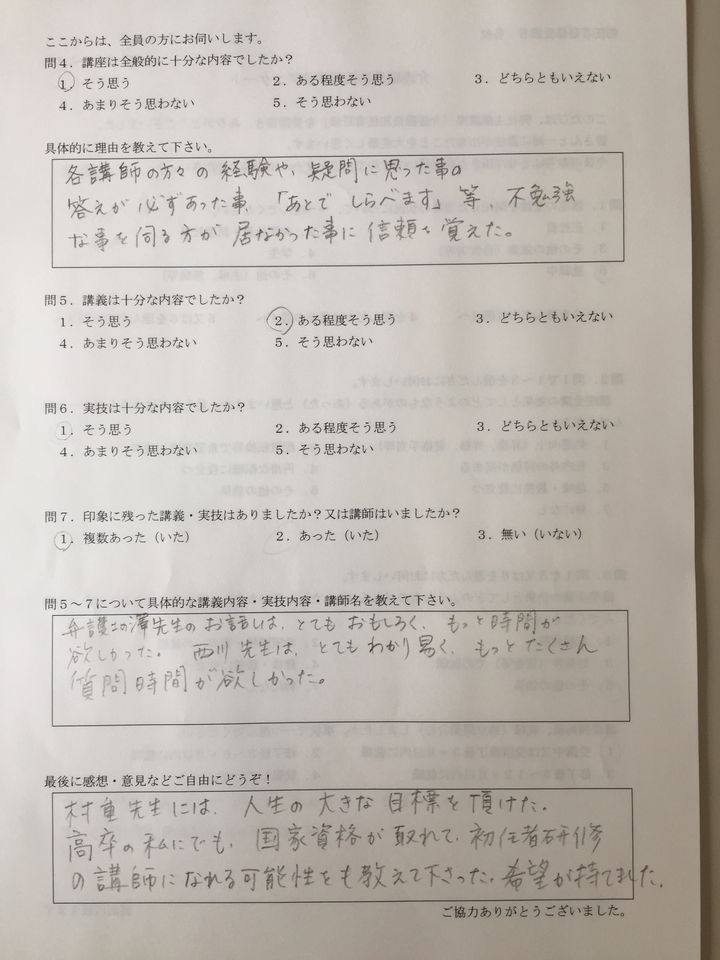 ここからは、全員の方にお伺いします。
問４．講座は全般的に十分な内容でしたか？
１．そう思う　２．ある程度そう思う　３．どちらともいえない
４．あまりそう思わない　５．そう思わない
具体的に理由を教えて下さい。
各講師の方々の経験や、疑問に思った事の
答えが必ずあった事、「あとでしらべます」等、不勉強
な事を伺る方が居なかった事に信頼を覚えた。
問５．講義は十分な内容でしたか？
１．そう思う　２．ある程度そう思う　３．どちらともいえない
４．あまりそう思わない　５．そう思わない
問６．実技は十分な内容でしたか？
１．そう思う　２．ある程度そう思う　３．どちらともいえない
４．あまりそう思わない　５．そう思わない
問７．印象に残った講義・実技はありましたか？又は講師はいましたか？
１．複数あった（いた）　２．あった（いた）　３．無い（いない）
問５～７について具体的な講義内容・実技内容・講師名を教えて下さい。
弁護士の澤先生のお話しは、とてもおもしろく、もっと時間が
欲しかった。　西川先生は、とてもわかり易く、もっとたくさん
質問時間が欲しかった。
最後に感想・意見などご自由にどうぞ！
村重先生には、人生の大きな目標を頂けた。
高卒の私にでも、国家資格が取れて、初任者研修
の講師になれる可能性をも教えて下さった。希望が持てました。
ご協力ありがとうございました。